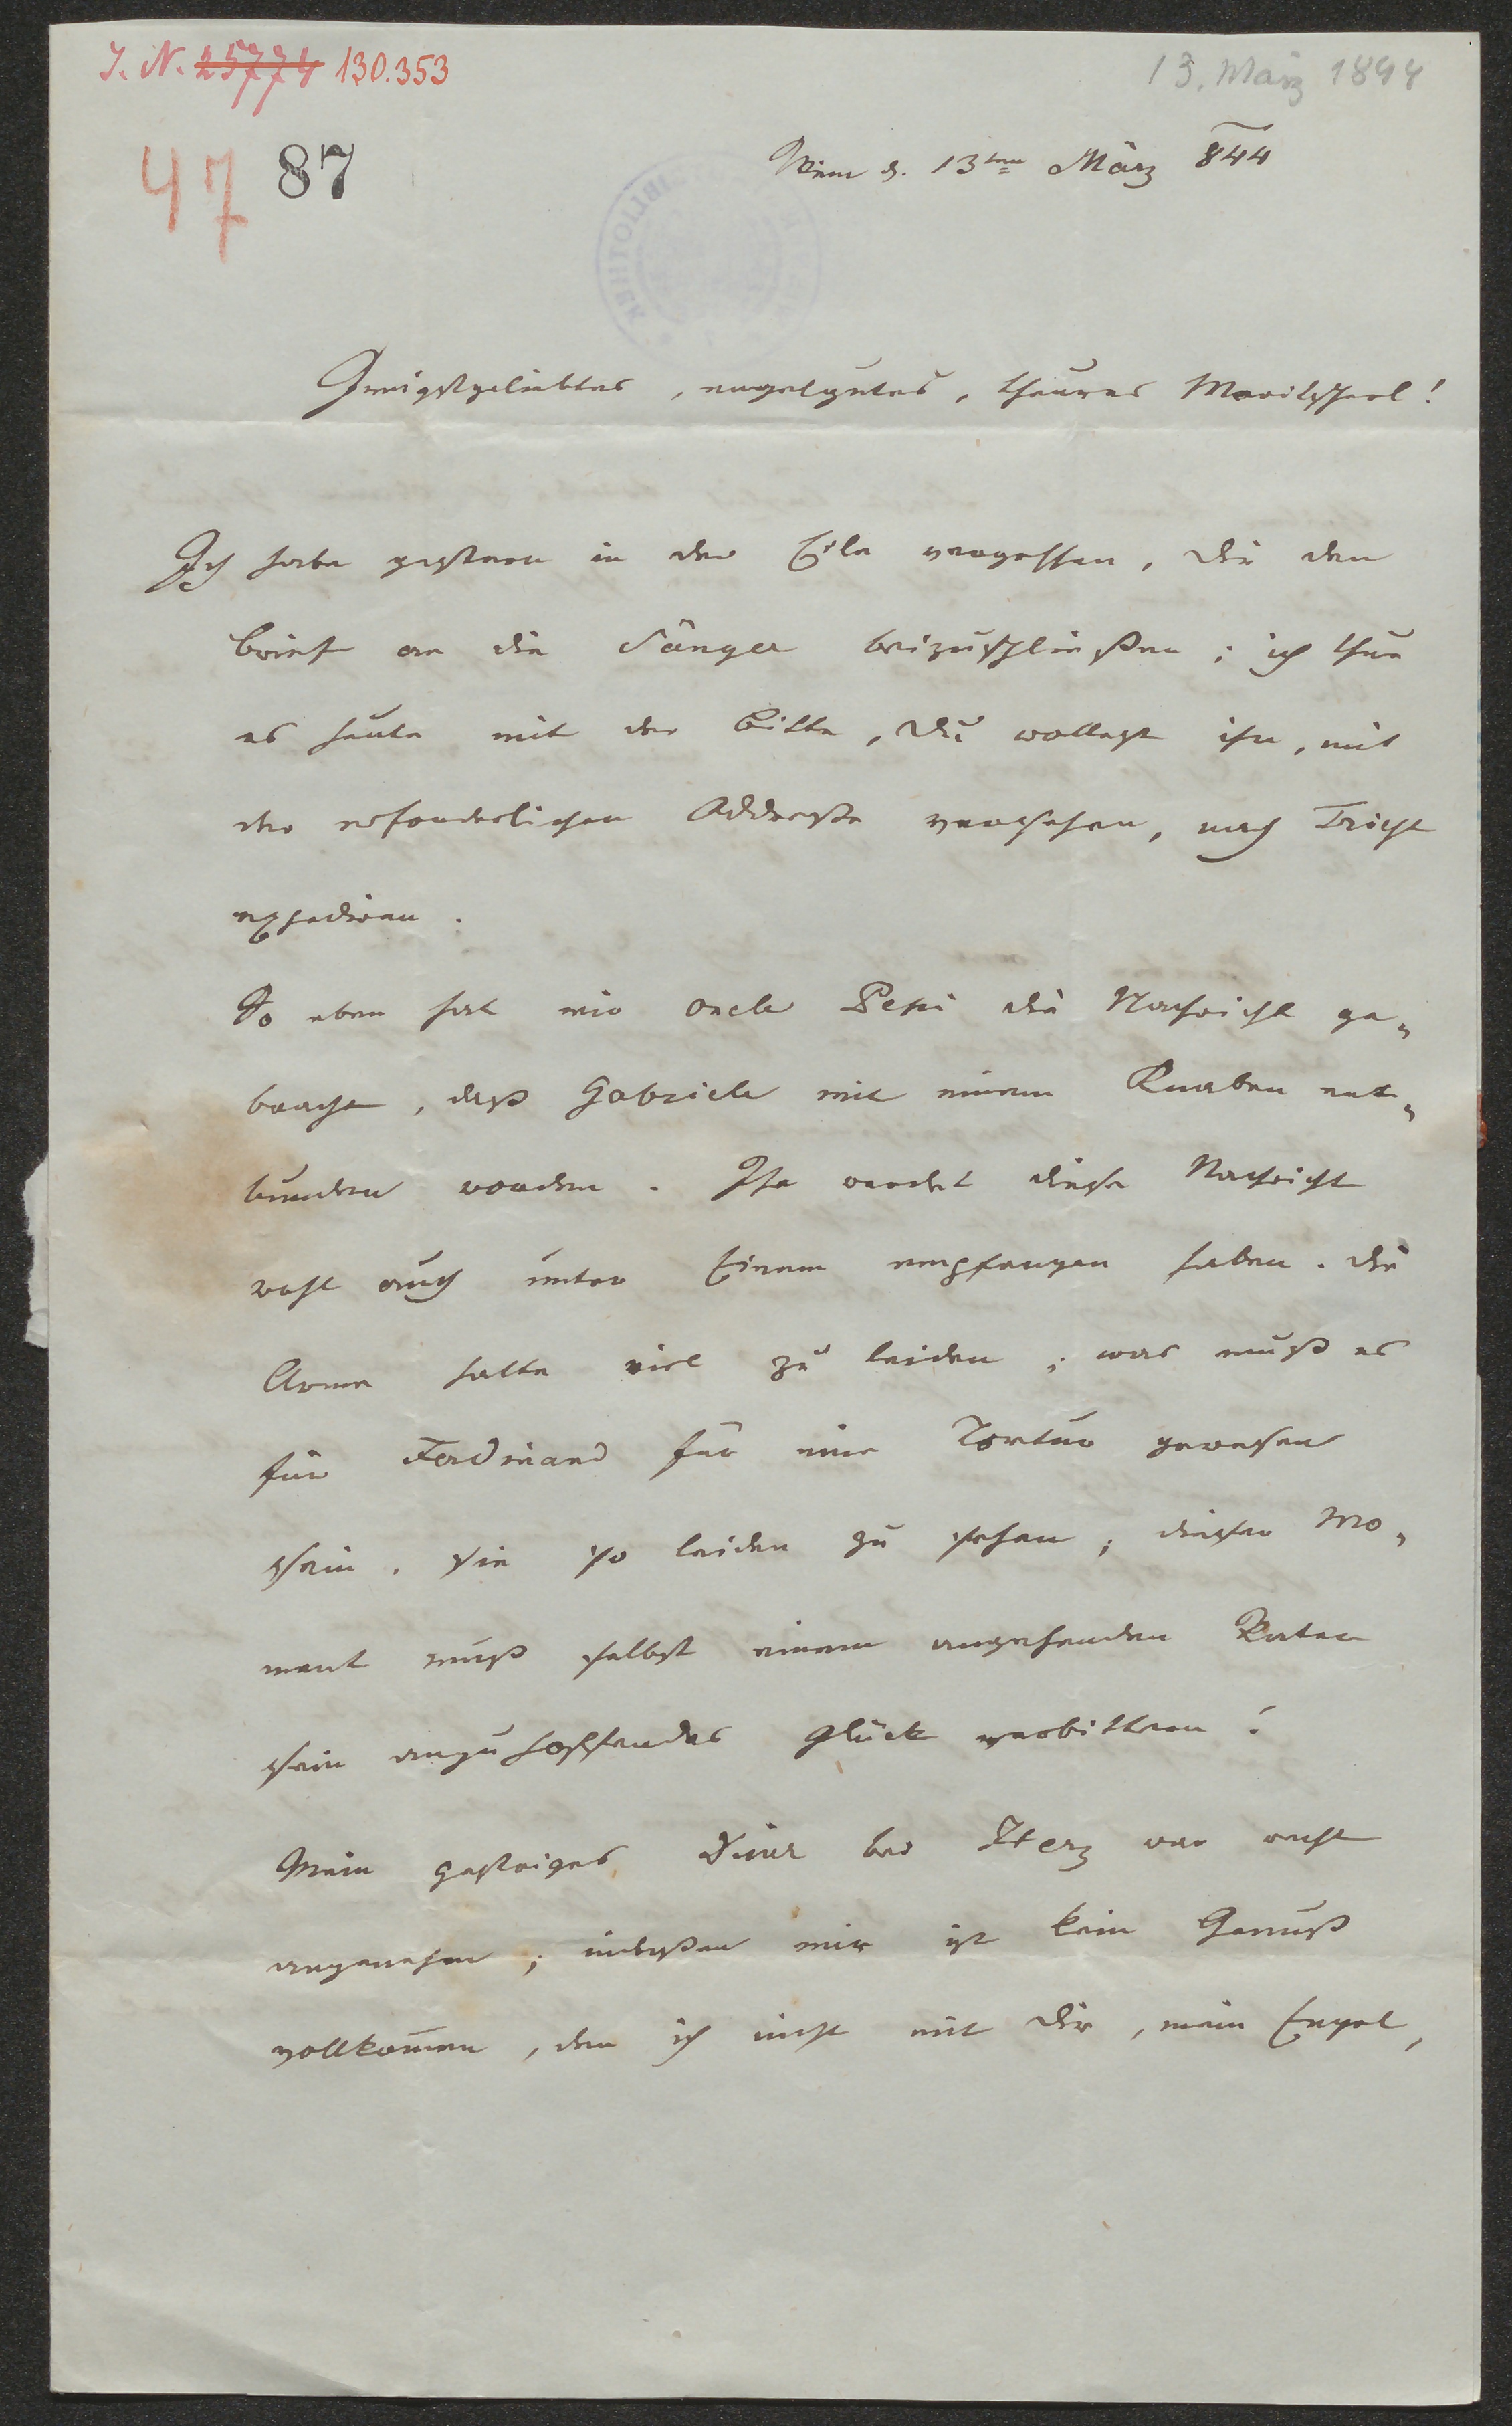 J. N. 25774 130.353
13. März 1844
47 87
Wien d. 13ten März 844
Innigstgeliebtes, engelgutes, theures Moritzherl!
Ich habe gestern in der Eile vergessen, Dir den
Brief an die Sänger beizuschließen; ich thue
es heute mit der Bitte, Du wollest ihn, mit
der erforderlichen Addresse versehen, nach Triest
expediren.
So eben hat mir Oncle Pepi die Nachricht ge„
bracht, daß Gabriele mit einem Knaben ent„
bunden worden. Ihr werdet diese Nachricht
wohl auch unter Einem empfangen haben. Die
Arme hatte viel zu leiden; was muß es
für Ferdinand für eine Tortur gewesen
sein, sie so leiden zu sehen; dieser Mo„
ment muß selbst einem angehenden Vater
sein anzuhoffendes Glück verbittern!
Mein gestriges Diner bei Herz war recht
angenehm; indessen mir ist kein Genuß
vollkommen, den ich nicht mit Dir, mein Engel,